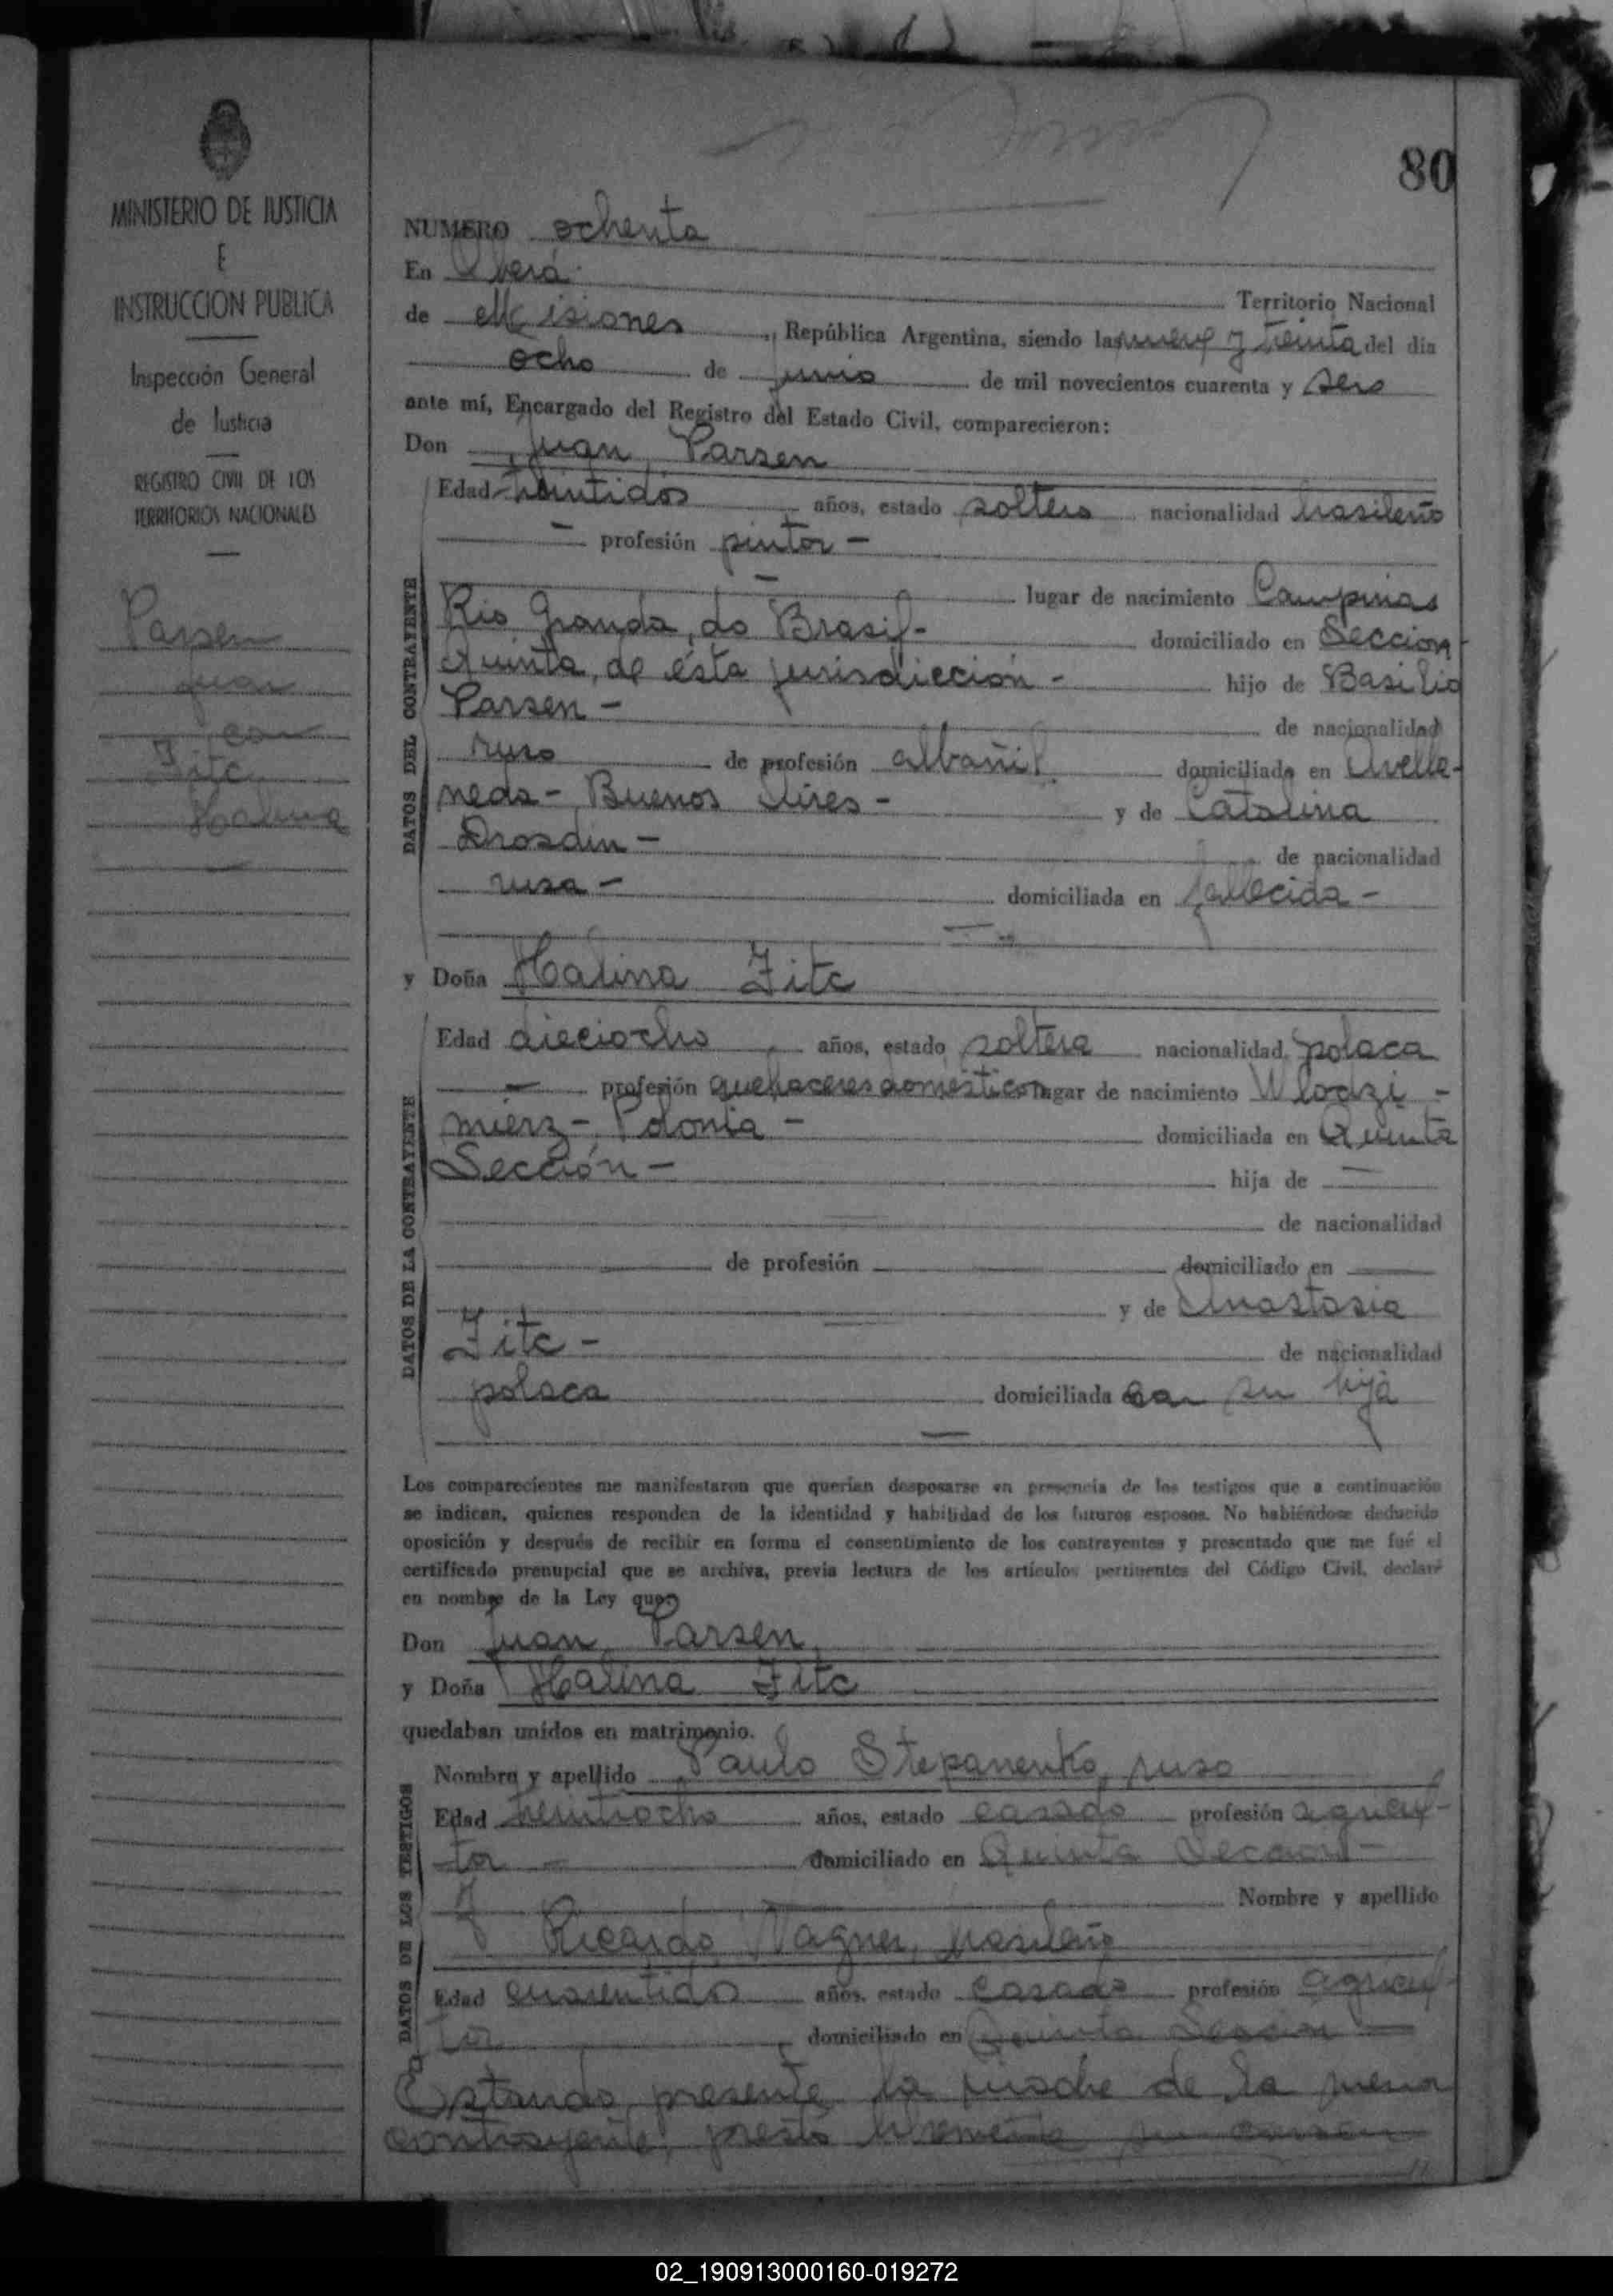 80
MINISTERIO DE JUSTICIA
E
INSTRUCCION PUBLICA
Inspección General
de Justicia
REGISTRO CIVIL DE LOS
TERRITORIOS NACIONALES
Parsen
Juan
con
Zitc
Halina
NUMERO ochenta
En Oberá
Territorio Nacional
de Misiones, República Argentina, siendo las nueve y treinta del día
ocho de junio de mil novecientos cuarenta y seis
ante mí, Encargado del Registro del Estado Civil, comparecieron:
Don Juan Parsen
Edad treintidos años, estado soltero nacionalidad brasileño
— profesión pintor —
lugar de nacimiento Campinas
Rio Granda, do Brasil - domiciliado en Sección
Quinta, de ésta jurisdicción - hijo de Basilio
Parsen - de nacionalidad
ruso de profesión albañil domiciliado en Avella-
neda - Buenos Aires - y de Catalina
Drosdin - de nacionalidad
rusa - domiciliada en fallecida -
y Doña Halina Zitc
Edad dieciocho años, estado soltera nacionalidad polaca
— profesión quehaceres domésticos lugar de nacimiento Wlodzi -
mierz - Polonia - domiciliada en Quinta
Sección - hija de —
de nacionalidad
de profesión domiciliado en
y de Anastasia
Zitc - de nacionalidad
polaca domiciliada con su hija
DATOS DEL CONTRAYENTE
DATOS DE LA CONTRAYENTE
Los comparecientes me manifestaron que querían desposarse en presencia de los testigos que a continuación
se indican, quienes responden de la identidad y habilidad de los futuros esposos. No habiéndose deducido
oposición y después de recibir en forma el consentimiento de los contrayentes y presentado que me fué el
certificado prenupcial que se archiva, previa lectura de los artículos pertinentes del Código Civil, declaré
en nombre de la Ley que:
Don Juan Parsen
y Doña Halina Zitc
quedaban unidos en matrimonio.
Nombre y apellido Paulo Stepanenko, ruso
Edad treintiocho años, estado casado profesión agricul-
tor - domiciliado en Quinta Sección -
y Nombre y apellido
Ricardo Wagner, brasileño
Edad cuarentidos años, estado casado profesión agricul-
tor domiciliado en Quinta Sección —
DATOS DE LOS TESTIGOS
Estando presente la madre de la menor
contrayente, prestó libremente su consen
02_190913000160-019272